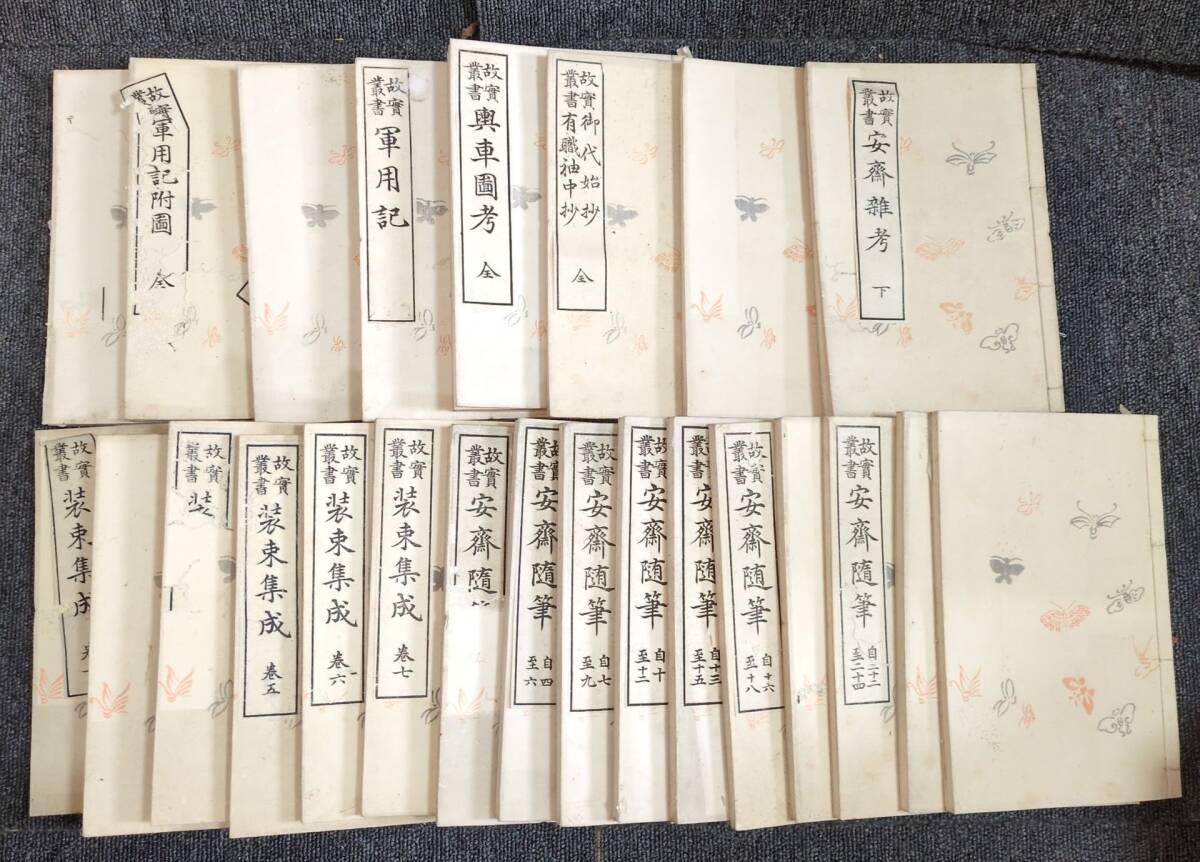 故實
叢書
軍用記附圖
全
故實
叢書
軍用記
故實
叢書
輿車圖考
全
故實御代始抄
叢書有職袖中抄
全
故實
叢書
安齋雜考
下
故實
叢書
装束集成
故實
叢書
装
故實
叢書
装束集成
卷五
故實
叢書
装束集成
卷六
故實
叢書
装束集成
卷七
故實
叢書
安齋隨
故實
叢書
安齋隨筆
自四
至六
故實
叢書
安齋隨筆
自七
至九
故實
叢書
安齋隨筆
自十
至十二
故實
叢書
安齋隨筆
自十三
至十五
故實
叢書
安齋隨筆
自十六
至十八
故實
叢書
安齋隨筆
自二十二
至二十四